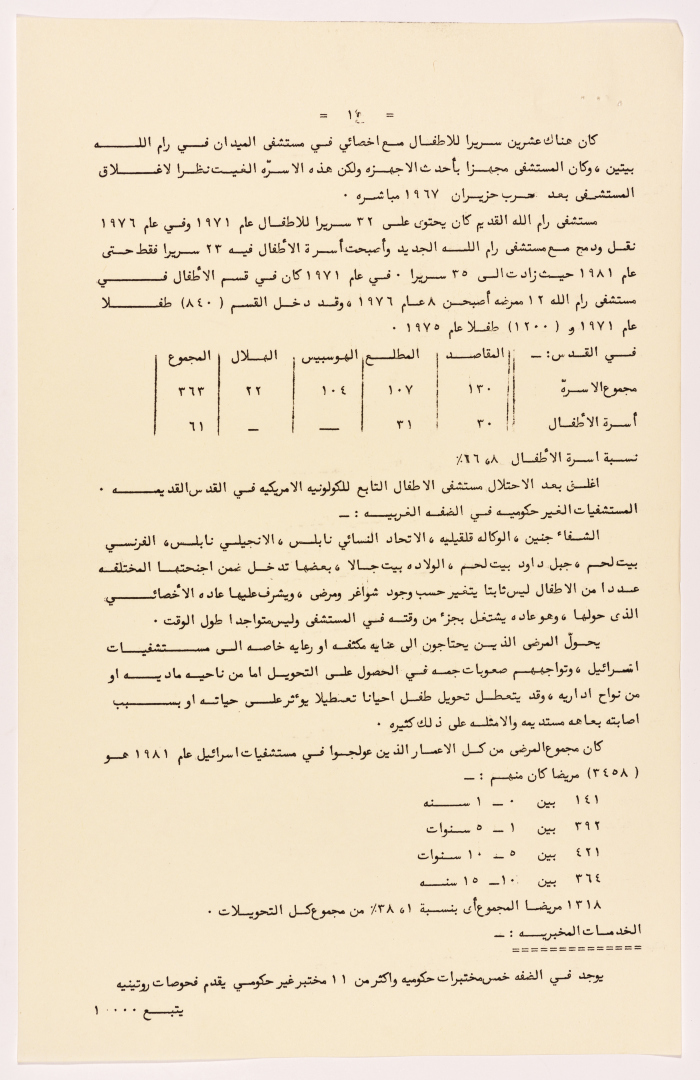 = ١٤ =
كان هناك عشرين سريرا للاطفال مع اخصائي في مستشفى الميدان في رام الله
بيتين ، وكان المستشفى مجهزا بأحدث الاجهزه ولكن هذه الاسرّه الغيت نظرا لاغلاق
المستشفى بعد حرب حزيران ١٩٦٧ مباشره ٠
مستشفى رام الله القديم كان يحتوى على ٣٢ سريرا للاطفال عام ١٩٧١ وفي عام ١٩٧٦
نقل ودمج مع مستشفى رام الله الجديد وأصبحت أسرة الأطفال فيه ٢٣ سريرا فقط حتى
عام ١٩٨١ حيث زادت الى ٣٥ سريرا ٠ في عام ١٩٧١ كان في قسم الأطفال في
مستشفى رام الله ١٢ ممرضه أصبحن ٨ عام ١٩٧٦ ، وقد دخل القسم ( ٨٤٠ ) طفلا
عام ١٩٧١ و ( ١٢٠٠ ) طفلا عام ١٩٧٥ ٠
في القدس : ــ المقاصد المطلع الهوسبيس الهلال المجموع
مجموع الاسرّة ١٣٠ ١٠٧ ١٠٤ ٢٢ ٣٦٣
أسرة الأطفال ٣٠ ٣١ ــ ــ ٦١
نسبة اسرة الأطفال ٨ ، ٦٦٪
اغلق بعد الاحتلال مستشفى الاطفال التابع للكولونيه الامريكيه في القدس القديمه ٠
المستشفيات الغير حكوميه في الضفه الغربيه : ــ
الشفاء جنين ، الوكاله قلقيليه ، الاتحاد النسائي نابلس ، الانجيلي نابلس ، الفرنسي
بيت لحم ، جبل داود بيت لحم ، الولاده بيت جالا ، بعضها تدخل ضمن اجنحتها المختلفه
عددا من الاطفال ليس ثابتا يتغير حسب وجود شواغر ومرضى ، ويشرف عليها عاده الأخصائي
الذى حولها ، وهو عاده يشتغل بجزء من وقته في المستشفى وليس متواجدا طول الوقت ٠
يحولّ المرضى الذين يحتاجون الى عنايه مكثفه او رعايه خاصه الى مستشفيات
اسرائيل ، وتواجههم صعوبات جمه في الحصول على التحويل اما من ناحيه ماديه او
من نواح اداريه ، وقد يتعطل تحويل طفل احيانا تعطيلا يؤثر على حياته او بسبب
اصابته بعاهه مستديمه والامثله على ذلك كثيره ٠
كان مجموع المرضى من كل الاعمار الذين عولجوا في مستشفيات اسرائيل عام ١٩٨١ هو
( ٣٤٥٨ ) مريضا كان منهم : ــ
١٤١ بين ٠ ــ ١ سنه
٣٩٢ بين ١ ــ ٥ سنوات
٤٢١ بين ٥ ــ ١٠ سنوات
٣٦٤ بين ١٠ ــ ١٥ سنه
١٣١٨ مريضا المجموع أى بنسبة ١ ، ٣٨٪ من مجموع كل التحويلات ٠
الخدمات المخبريه : ــ
==============
يوجد في الضفه خمس مختبرات حكوميه واكثر من ١١ مختبر غير حكومي يقدم فحوصات روتينيه
يتبع ٠٠٠٠ ١